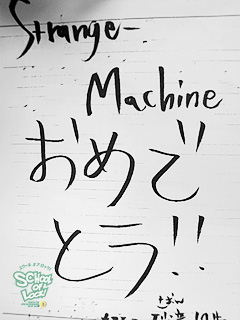 Strange-
Machine
おめで
とう!!
SCHOOL
OF
LOCK!